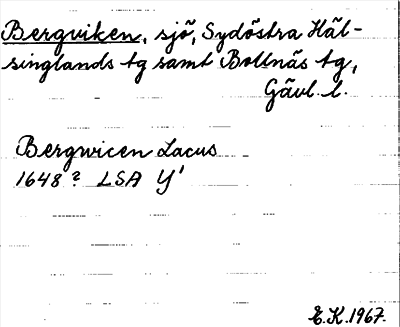 Bergviken, sjö, Sydöstra Häl-
singlands tg samt Bollnäs tg,
Gävl. l.
Bergwicen Lacus
1648? LSA Y¹
E.K.1967.